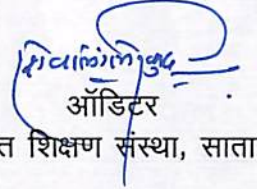 ऑडिटर
त शिक्षण संस्था, साता